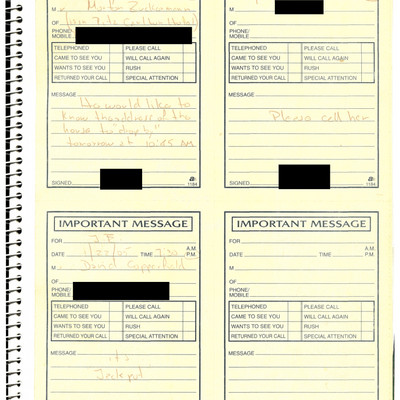 M Mortor Zuckermann
OF
PHONE/
MOBILE
TELEPHONED PLEASE CALL
CAME TO SEE YOU WILL CALL AGAIN
WANTS TO SEE YOU RUSH
RETURNED YOUR CALL SPECIAL ATTENTION
MESSAGE
He would like to
know the address of the
house to "drop by"
tomorrow at 10:45 AM
SIGNED 1184
M
OF
PHONE/
MOBILE
TELEPHONED PLEASE CALL
CAME TO SEE YOU WILL CALL AGAIN
WANTS TO SEE YOU RUSH
RETURNED YOUR CALL SPECIAL ATTENTION
MESSAGE
Please call her
SIGNED 1184
IMPORTANT MESSAGE
FOR J.E
DATE 1/22/05 TIME 7:30 A.M. P.M.
M David Copperfield
OF
PHONE/
MOBILE
TELEPHONED PLEASE CALL
CAME TO SEE YOU WILL CALL AGAIN
WANTS TO SEE YOU RUSH
RETURNED YOUR CALL SPECIAL ATTENTION
MESSAGE
it's
Jackpot
IMPORTANT MESSAGE
FOR
DATE TIME A.M. P.M.
M
OF
PHONE/
MOBILE
TELEPHONED PLEASE CALL
CAME TO SEE YOU WILL CALL AGAIN
WANTS TO SEE YOU RUSH
RETURNED YOUR CALL SPECIAL ATTENTION
MESSAGE